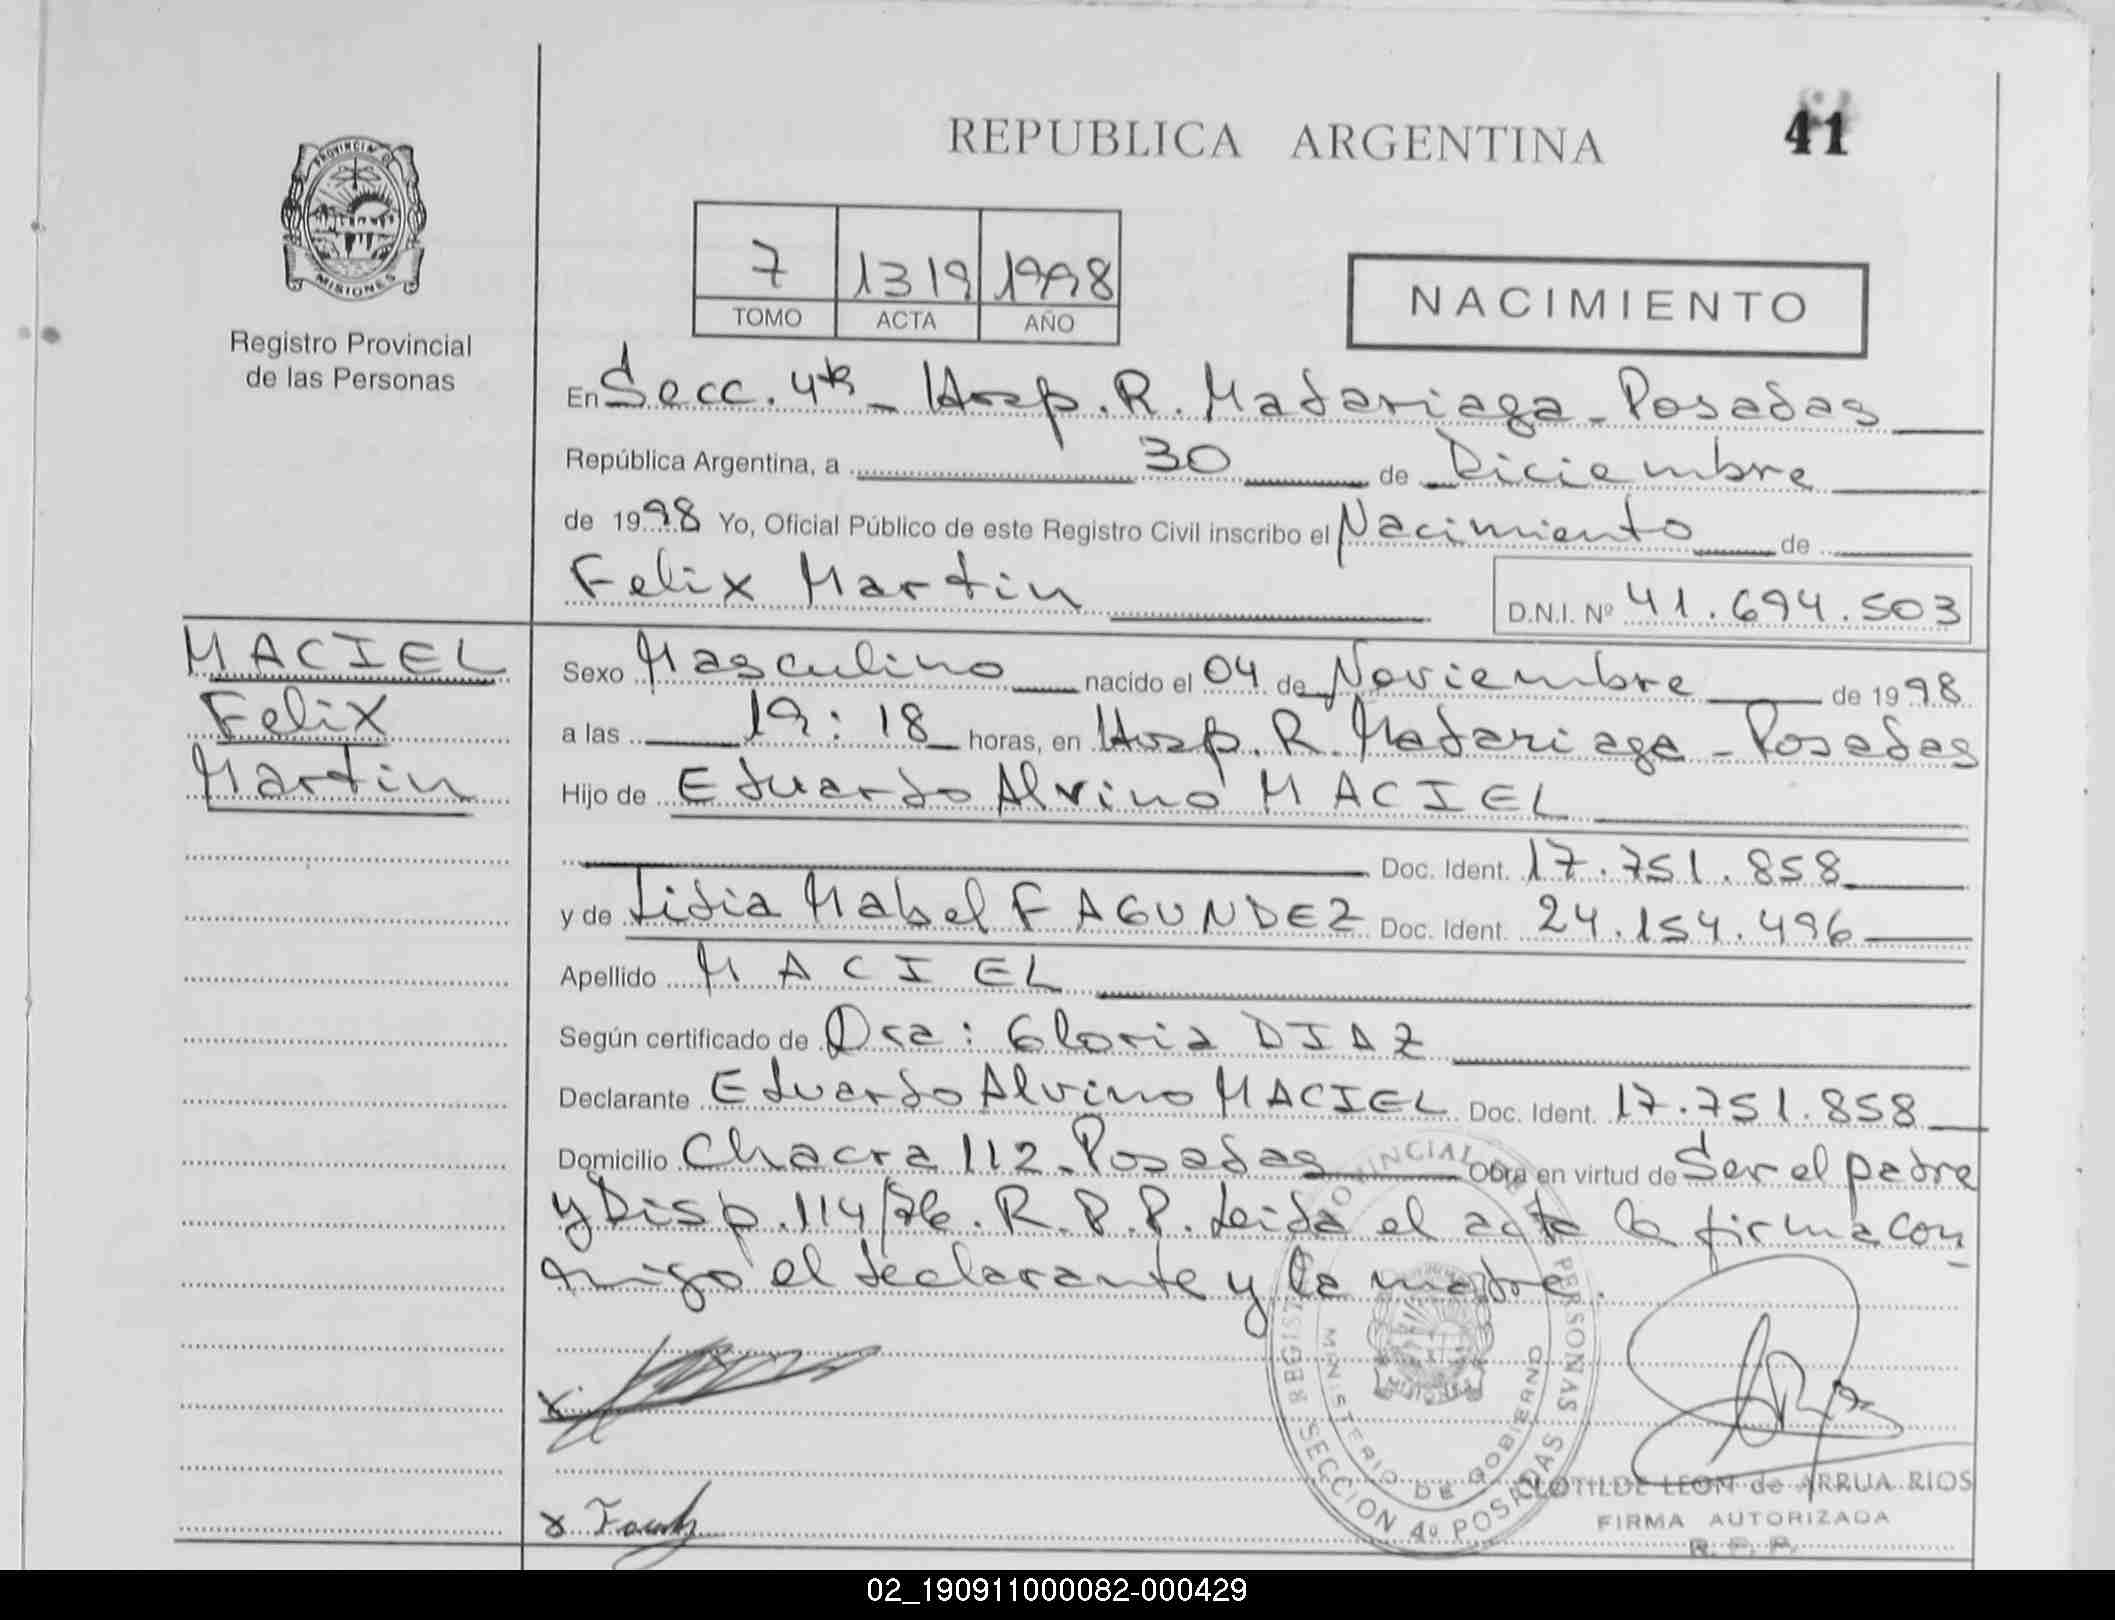 REPUBLICA ARGENTINA
41
PROVINCIA D
MISIONES
Registro Provincial
de las Personas
7 1319 1998
TOMO ACTA AÑO
NACIMIENTO
En Secc. 4ta - Hosp. R. Madariaga - Posadas
República Argentina, a 30 de Diciembre
de 1998 Yo, Oficial Público de este Registro Civil inscribo el Nacimiento de
Felix Martin D.N.I. Nº 41.694.503
MACIEL
Felix
Martin
Sexo Masculino nacido el 04 de Noviembre de 1998
a las 19:18 horas, en Hosp. R. Madariaga - Posadas
Hijo de Eduardo Alvino MACIEL
Doc. Ident. 17.751.858
y de Lidia Mabel FAGUNDEZ Doc. Ident. 24.154.496
Apellido MACIEL
Según certificado de Dra: Gloria DIAZ
Declarante Eduardo Alvino MACIEL Doc. Ident. 17.751.858
Domicilio Chacra 112 - Posadas Obra en virtud de Ser el padre
y Disp. 114/76. R.P.P. Leida el acta la firma con
migo el declarante y la madre.
MINISTERIO DE GOBIERNO
SECCION 4º POSADAS
CLOTILDE LEON de ARRUA RIOS
FIRMA AUTORIZADA
R. P. P.
02_190911000082-000429